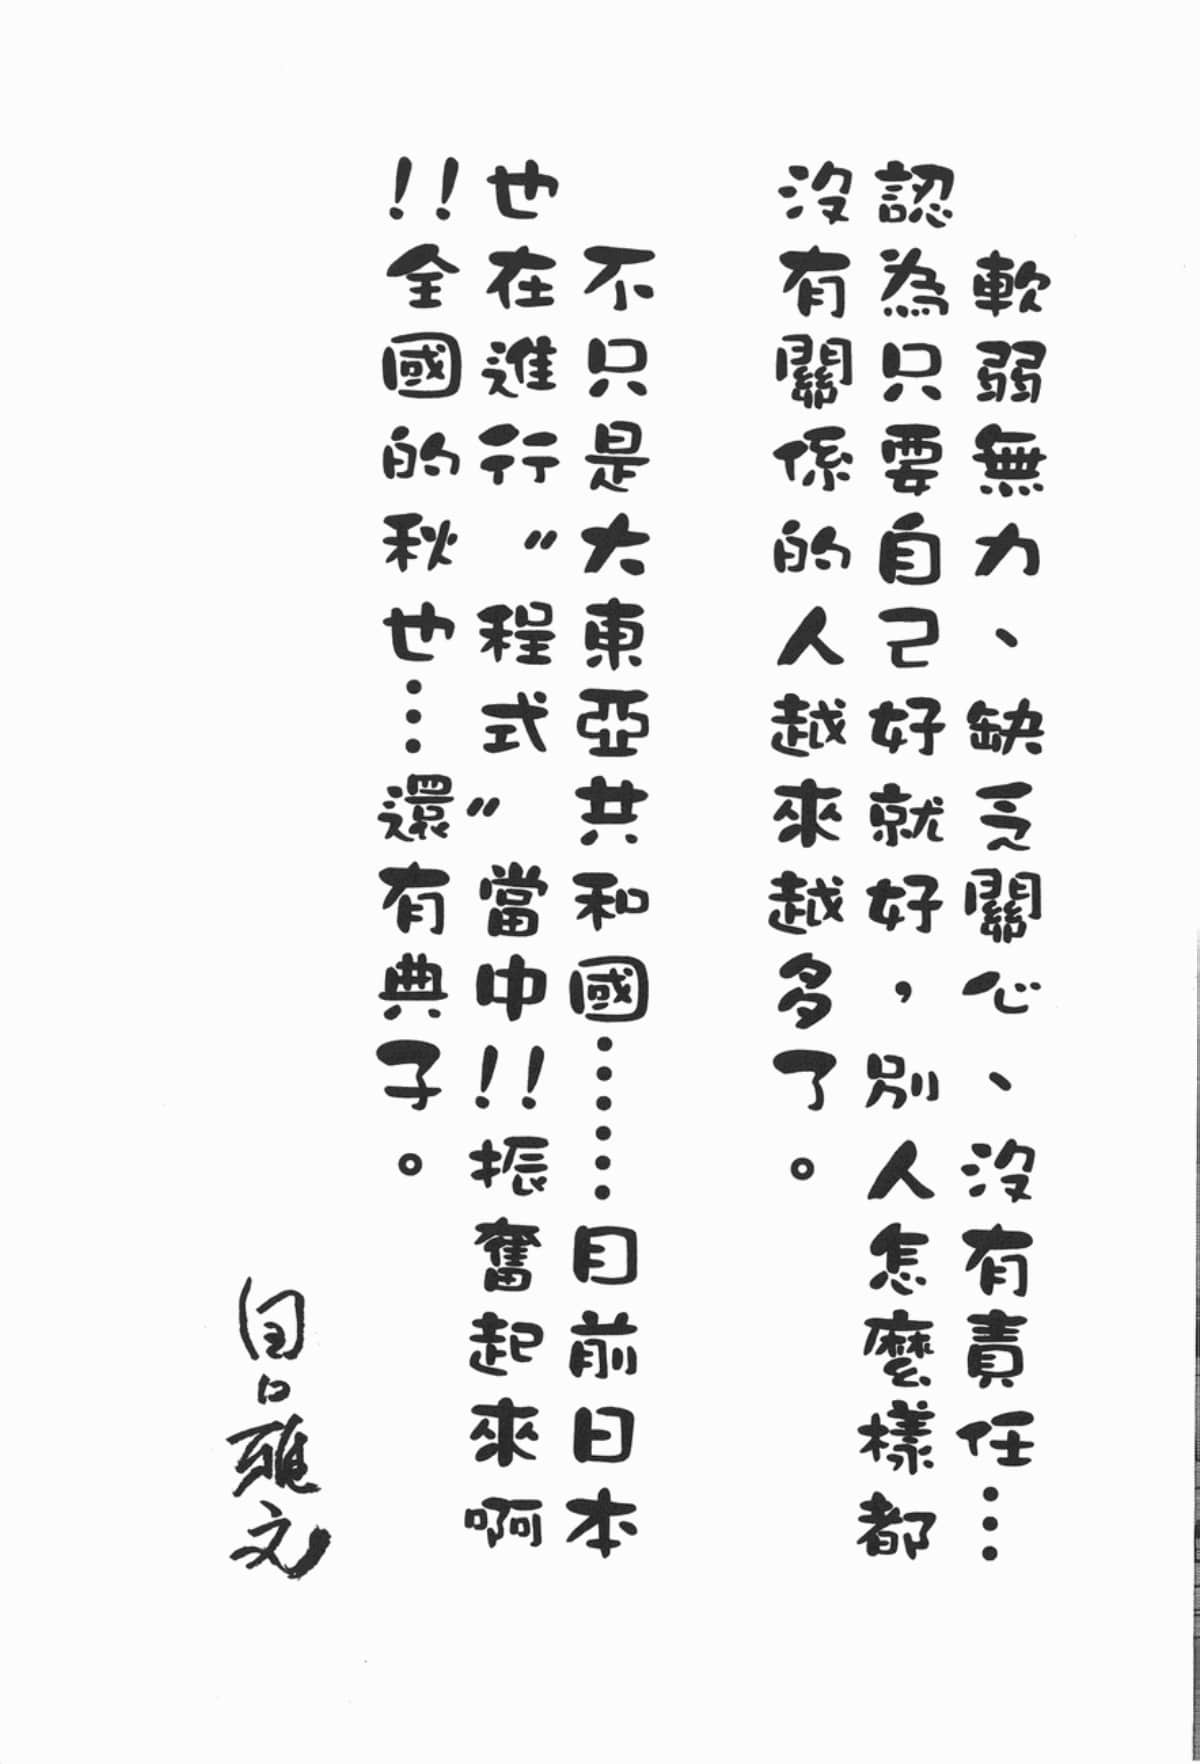 軟弱無力、缺乏關心、沒有責任…
認為只要自己好就好，別人怎麼樣都
沒有關係的人越來越多了。
不只是大東亞共和國……目前日本
也在進行〝程式〞當中!!振奮起來啊
!!全國的秋也…還有典子。
田口雅文